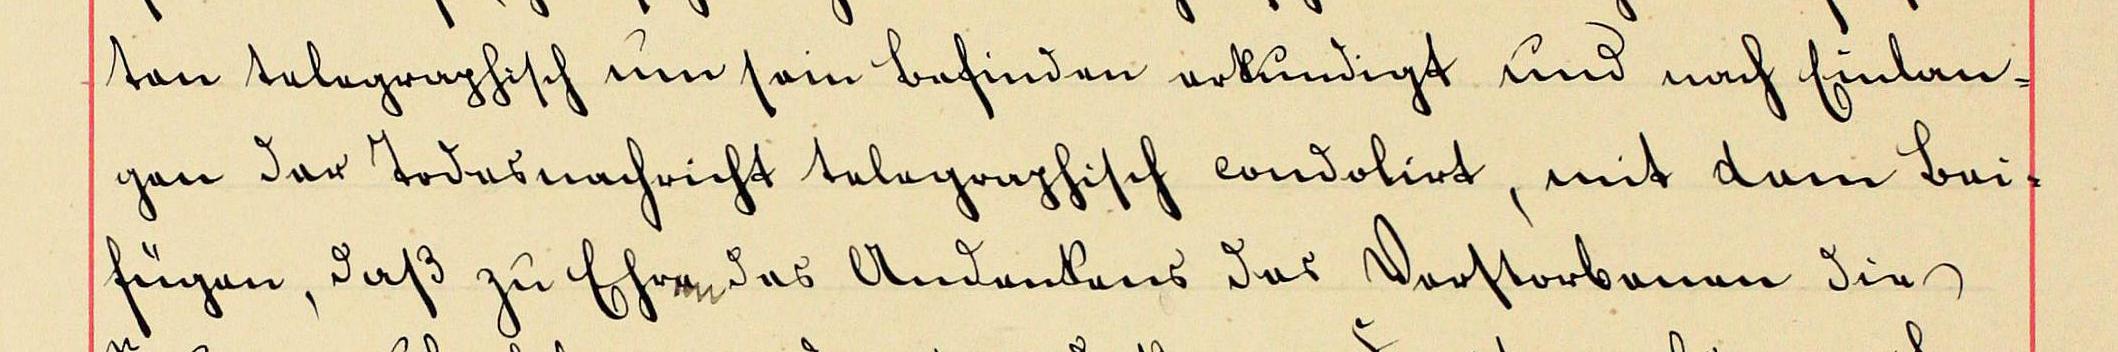 ten telegraphisch um sein Befinden erkundigt und nach Einlan-
gen der Todesnachricht telegraphisch condolirt, mit dem Bei-
fügen, daß zu Ehren des Andenkens des Verstorbenen die